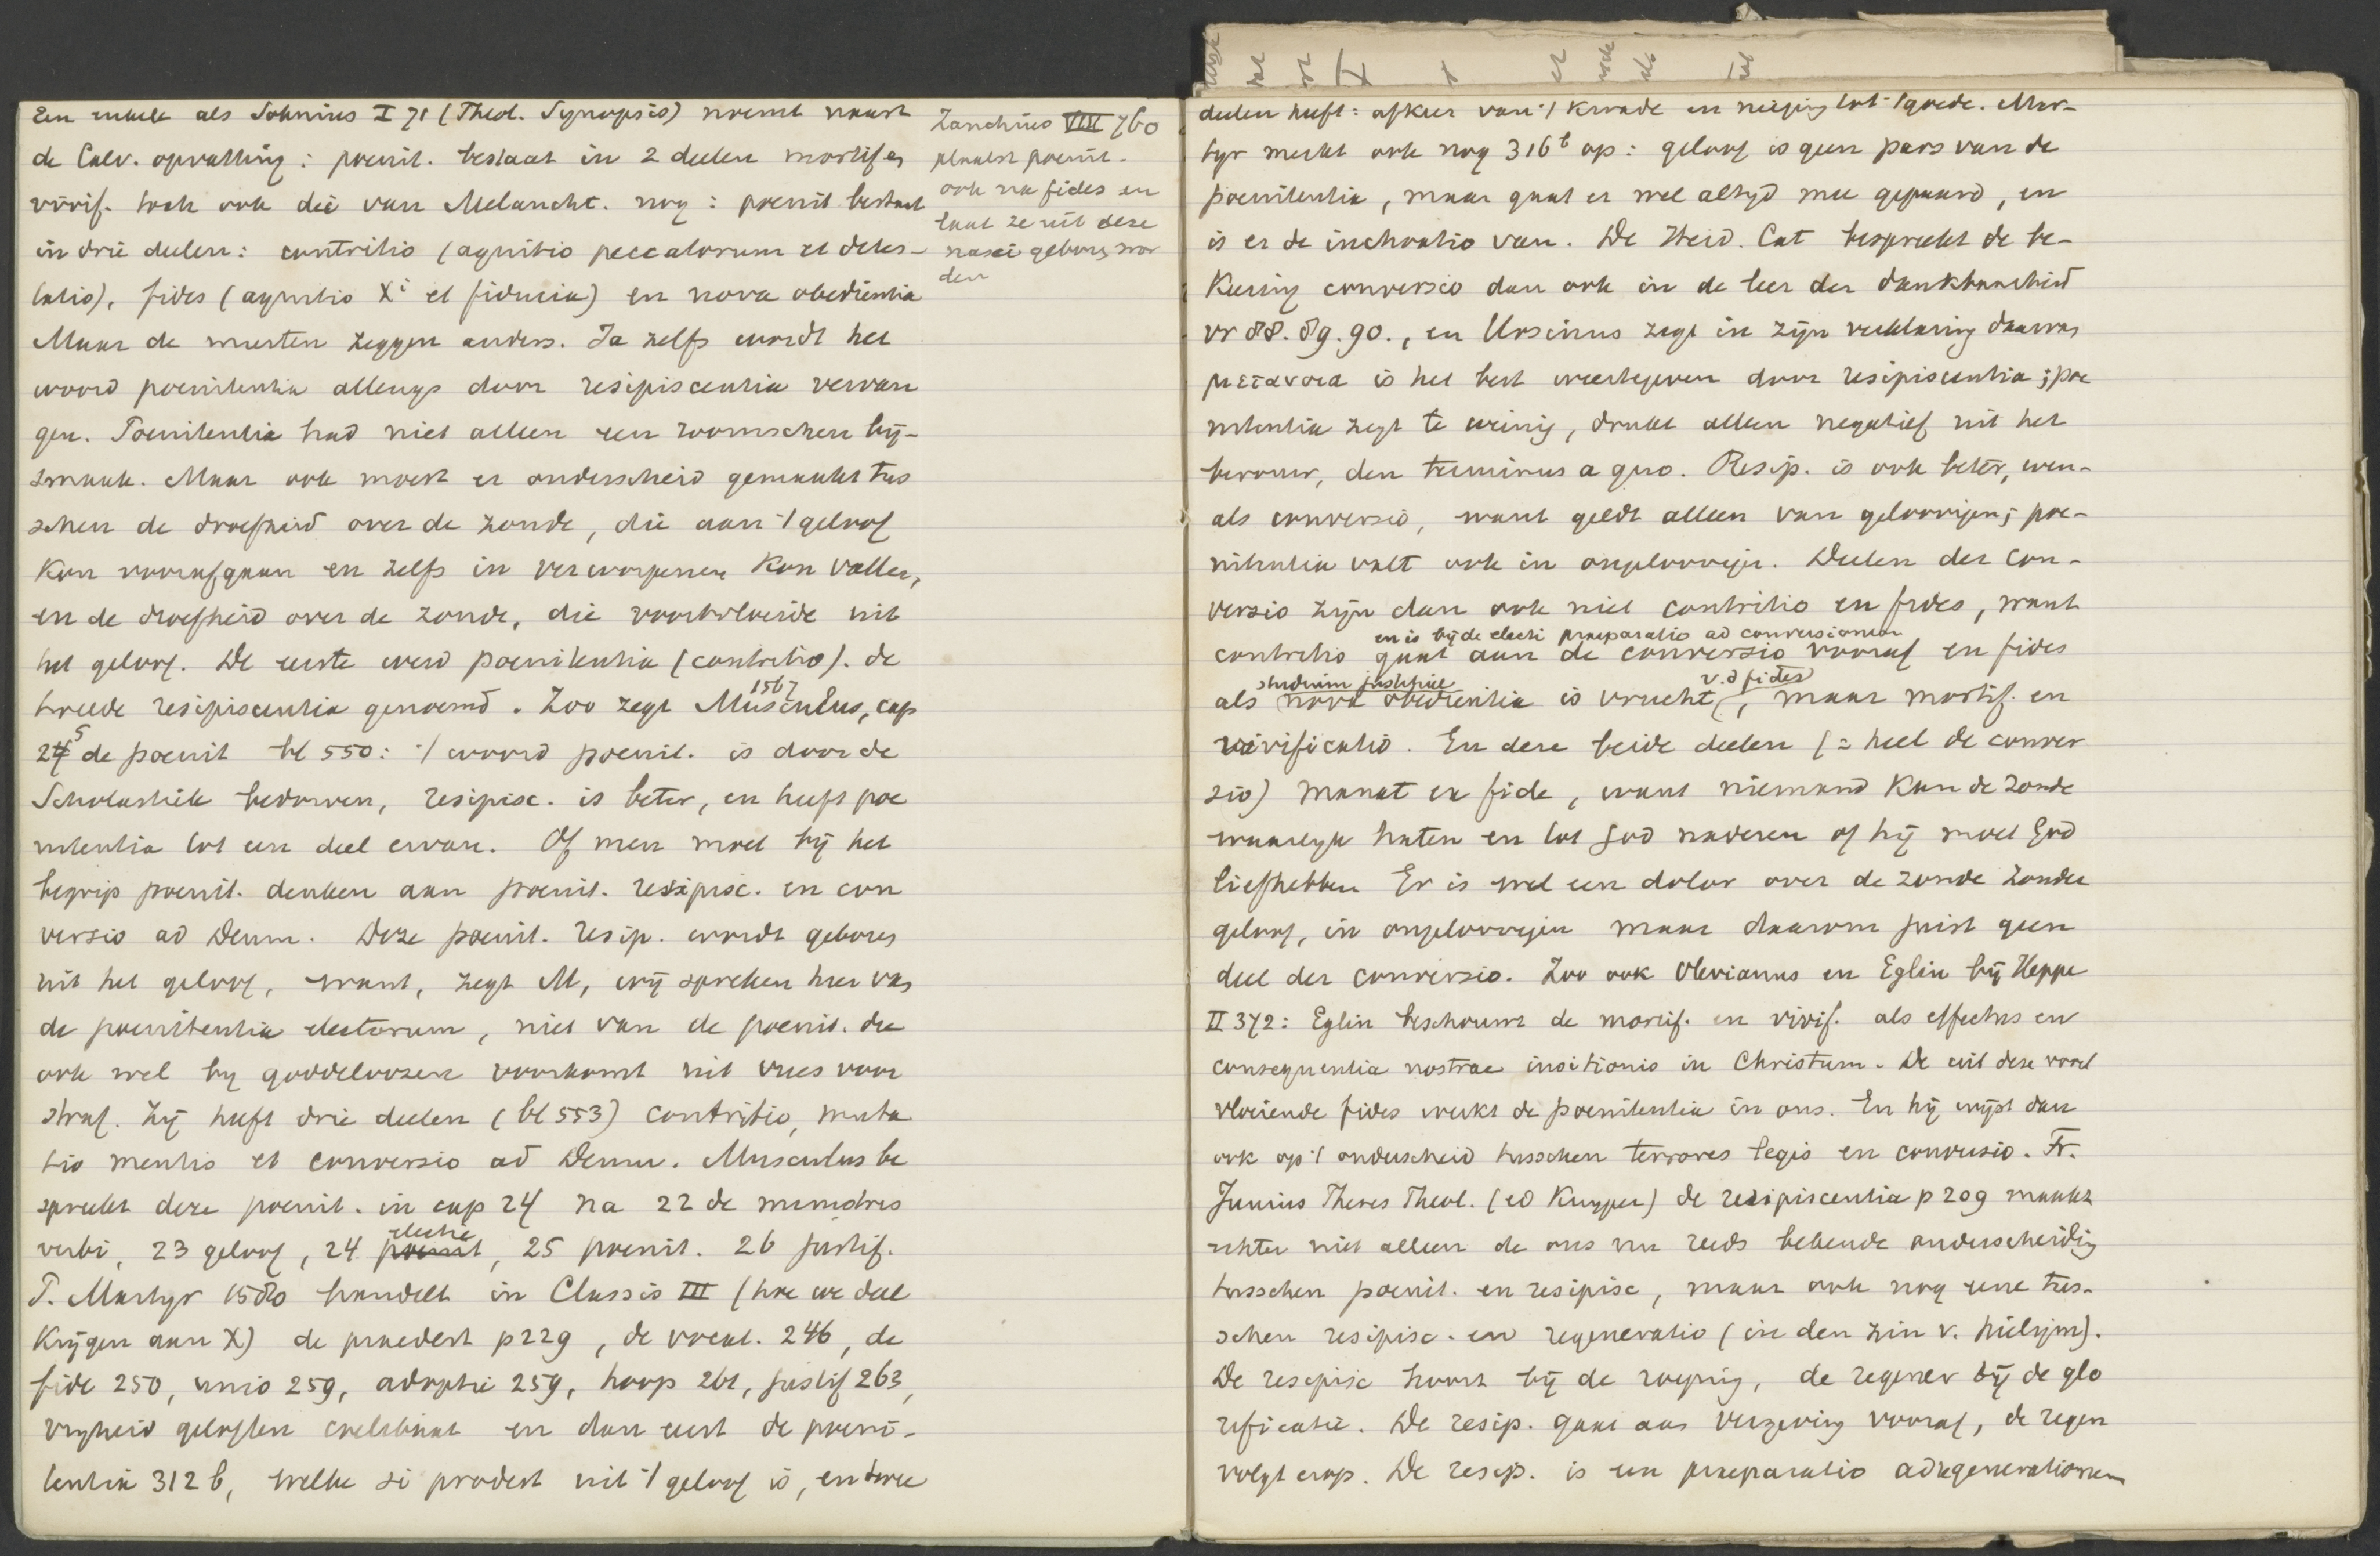 Een enkele als Sohnius I 71 (Theol. Synopsis) noemt naast
de Calv. opvatting: poenit. bestaat in 2 deelen mortif en
vivif. toch ook die van Melancht. nog: poenit bestaat
in drie deelen: contritio (agnitio peccatorum et detes-
tatio), fides (agnitio Xi et fiducia) en nova obedientia
Maar de meesten zeggen anders. Ja zelfs wordt het
woord poenitentia allengs door resipiscentia vervan
gen. Poenitentia had niet alleen een roomschen bij-
smaak. Maar ook moest er onderscheid gemaakt tus
schen de droefheid over de zonde, die aan 't geloof
kon voorafgaan en zelfs in verworpenen kon vallen,
en de droefheid over de zonde, die voortvloeide uit
het geloof. De eerste werd poenitentia (contritio). de
tweede resipiscentia genoemd. Zoo zegt Musculus, cap
1567
24 5 de poenit bl 550: 't woord poenit. is door de
Scholastiek bedorven, resipisc. is beter, en heeft poe
nitentia tot een deel ervan. Of men moet bij het
begrip poenit. denken aan poenit. resipisc. en con
versio ad Deum. Deze poenit. resip. wordt geboren
uit het geloof, want, zegt M, wij spreken hier van
de poenitentia electorum, niet van de poenit. die
ook wel by goddeloozen voorkomt uit vrees voor
straf. Zij heeft drie deelen (bl 553) contritio, muta
tio mentis et conversio ad Deum. Musculus be
spreekt deze poenit. in cap 24 na 22 de ministris
verbi, 23 geloof, 24 poenit electie, 25 poenit. 26 justif.
P. Martyr 1580 handelt in Classis III (hoe we deel
krijgen aan X) de praedest p 229, de vocat. 246, de
fide 250, unio 259, adoptie 259, hoop 261, justif 263,
vryheid geloften coelibaat en dan eerst de poeni-
tentia 312 b, welke si prodest uit 't geloof is, en twee
Zanchius VIII 760
plaatst poenit.
ook na fides en
laat ze uit deze
nasci geboren wor
den
deelen heeft: afkeer van 't kwade en neiging tot 't goede. Mar-
tyr merkt ook nog 316 b op: geloof is geen pars van de
poenitentia, maar gaat er wel altyd mee gepaard, en
is er de inchoatio van. De Heid. Cat bespreekt de be-
keering conversio dan ook in de leer der dankbaarheid
vr 88. 89. 90., en Ursinus zegt in zijn verklaring daarvan
μετανοια is het best weergegeven door resipiscentia; poe
nitentia zegt te weinig, drukt alleen negatief uit het
berouw, den terminus a quo. Resip. is ook beter, even-
als conversio, want geldt alleen van geloovigen; poe-
nitentia valt ook in ongeloovigen. Deelen der con-
versio zijn dan ook niet contritio en fides, want
en is bij de electi praeparatio ad conversionem
contritio gaat aan de conversio vooraf en fides
studium justitiae v.d fides
als nova obedientia is vrucht, maar mortif. en
vivificatio. En deze beide deelen (= heel de conver
sio) manat ex fide, want niemand kan de zonde
waarlyk haten en tot God naderen of hij moet God
liefhebben Er is wel een dolor over de zonde zonder
geloof, in ongeloovigen maar daarom juist geen
deel der conversio. Zoo ook Olevianus en Eglin bij Heppe
II 372: Eglin beschouwt de mortif. en vivif. als effectus en
consequentia nostrae insitionis in Christum. De uit deze voort
vloeiende fides werkt de poenitentia in ons. En hij wijst dan
ook op 't onderscheid tusschen terrores legis en conversio. Fr.
Junius Theses Theol. (ed Kuyper) de resipiscentia p 209 maakt
echter niet alleen de ons nu reeds bekende onderscheidig
tusschen poenit. en resipisc, maar ook nog eene tus-
schen resipisc. en regeneratio (in den zin v. heiligm).
De resipisc hoort bij de roeping, de regener bij de glo
rificatie. De resip. gaat aan vergeving vooraf, de regen
volgt erop. De resip. is een praeparatio ad regenerationem